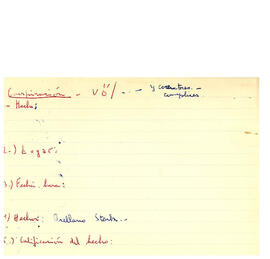 Conspiración - vó/ . . - y coautores. -
cómplices.
- Hecho:
2.-) Lugar:
3.-) Fecha, hora:
4) Hechor: Arellano Stark. -
5.-) Calificación del hecho: